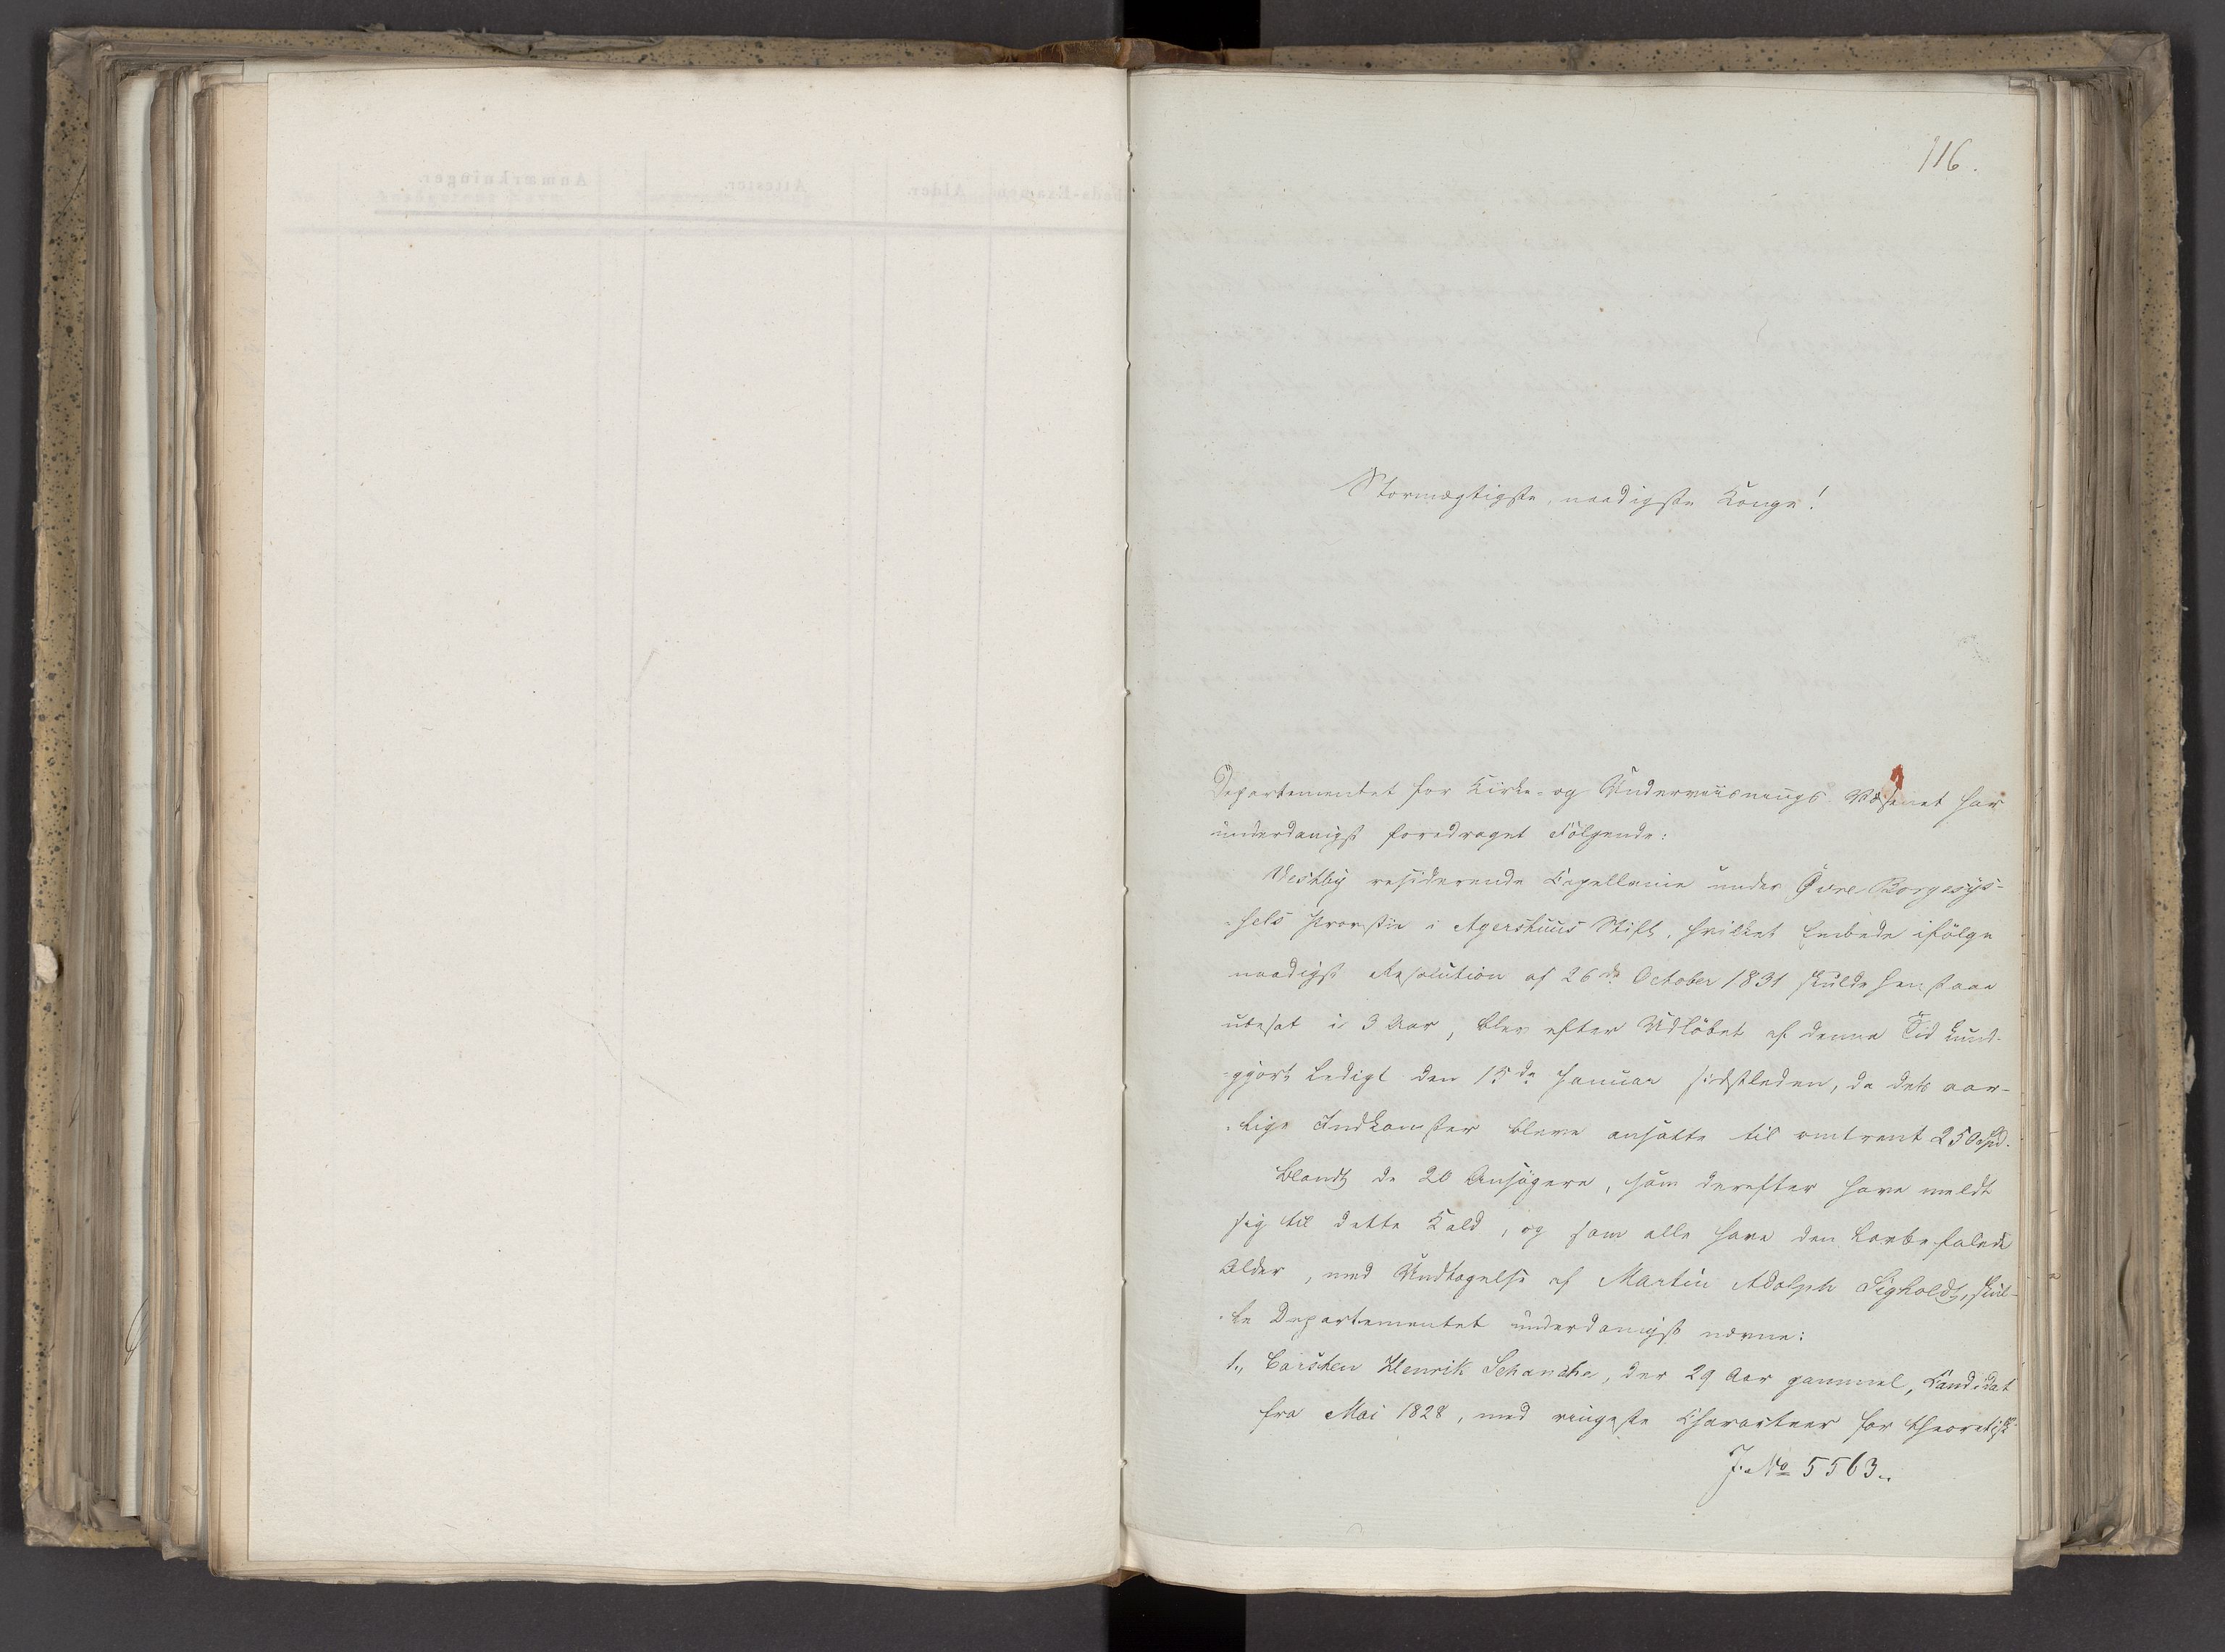 116.
Stormægtigste, naadigste Konge!
Departementet for Kirke- og Underviisnings Væsenet har
underdanigst foredraget Følgende:
Vestby residerende Capellanie under Övre Borgesys-
-sels Provstie i Agershuus Stift, hvilket Embede ifölge
naadigst Resolution af 26de October 1831 skulde henstaae
ubesat i 3 Aar, blev efter Udlöbet af denne Tid kund-
-gjort ledigt den 15de Januar sidstleden, da dets aar-
-lige Indkomster bleve ansatte til omtrent 250 Spd.
Blandt de 20 Ansögere, som derefter have meldt
sig til dette Kald, og som alle have den lovbefalede
Alder, med Undtagelse af Martin Adolph Sigholdt, skul-
-le Departementet underdanigst nævne:
1., Carsten Henrik Schanche, der 29 Aar gammel, Candidat
fra Mai 1828, med ringeste Characteer for theoretisk
J. No 5563.
Anmærkninger.
Attester.
Alder.